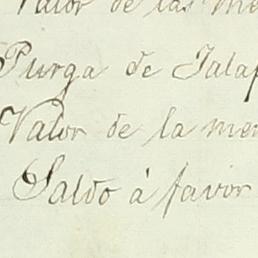 Valor de las me
Purga de Jalap
Valor de la mer
Saldo á favor